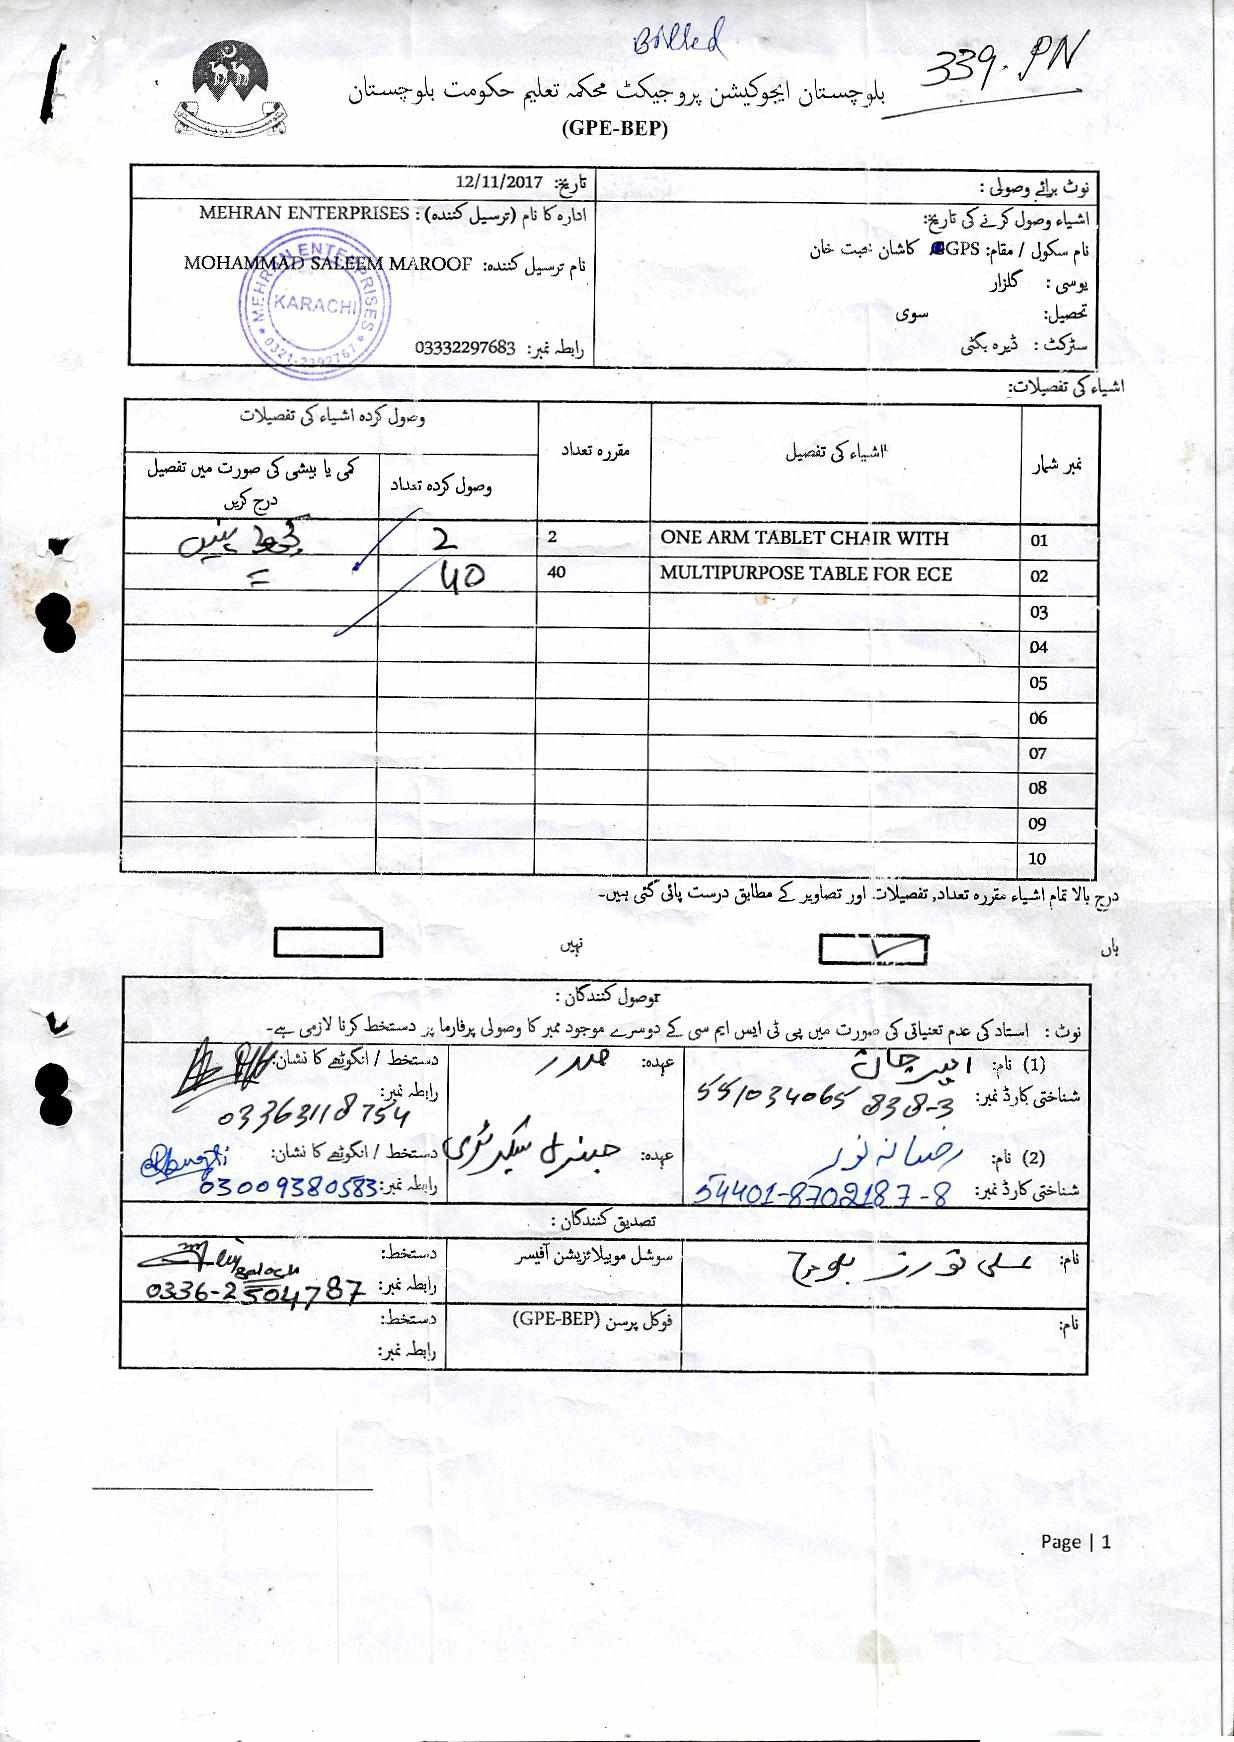 Billed
339. PN
بلوچستان ایجوکیشن پروجیکٹ محکمہ تعلیم حکومت بلوچستان
(GPE-BEP)
نوٹ برائے وصولی :
اشیاء وصول کرنے کی تاریخ:
نام سکول / مقام: GGPS کاشان خان
یوسی : گلزار
تحصیل: سوی
سٹرکٹ : ڈیرہ بگٹی
تاریخ: 12/11/2017
ادارہ کا نام (ترسیل کنندہ) : MEHRAN ENTERPRISES
نام ترسیل کنندہ: MOHAMMAD SALEEM MAROOF
رابطہ نمبر: 03332297683
MEHRAN ENTERPRISES
KARACHI
0321-2392767
اشیاء کی تفصیلات:
نمبر شمار اشیاء کی تفصیل مقررہ تعداد وصول کردہ اشیاء کی تفصیلات
وصول کردہ تعداد کمی یا بیشی کی صورت میں تفصیل درج کریں
01 ONE ARM TABLET CHAIR WITH 2 2
02 MULTIPURPOSE TABLE FOR ECE 40 40 =
03
04
05
06
07
08
09
10
درج بالا تمام اشیاء مقررہ تعداد, تفصیلات اور تصاویر کے مطابق درست پائی گئی ہیں۔
ہاں ✓ نہیں
وصول کنندگان :
نوٹ : استاد کی عدم تعنیاتی کی صورت میں پی ٹی ایس ایم سی کے دوسرے موجود ممبر کا وصولی پرفارما پر دستخط کرنا لازمی ہے۔
(1) نام: عہدہ: صدر دستخط / انگوٹھے کا نشان:
شناختی کارڈ نمبر: 551034065 838-3 رابطہ نمبر: 03363118754
(2) نام: رضانہ نور عہدہ: جنرل سیکرٹری دستخط / انگوٹھے کا نشان:
شناختی کارڈ نمبر: 54401-8702187-8 رابطہ نمبر: 03009380583
تصدیق کنندگان :
نام: علی نورز بلوچ سوشل موبیلائزیشن آفیسر دستخط: Baloch
رابطہ نمبر: 0336-2504787
نام: فوکل پرسن (GPE-BEP) دستخط:
رابطہ نمبر:
Page | 1